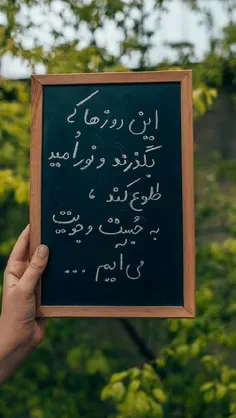 این روزها کی
بگذرند و نور امید
طلوع کند ،
به جُست و جویت
می آیم ...